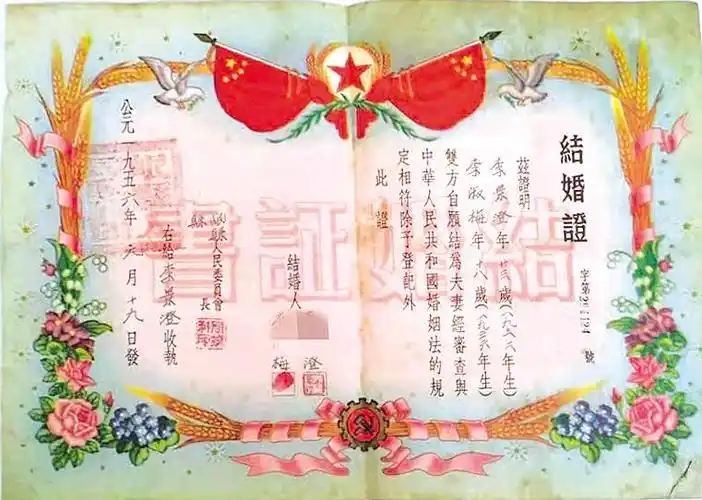 結婚證
字第 號
茲證明
李景澄年 歲(一九三 年生)
李淑梅年十八歲(一九三 年生)
雙方自願結為夫妻經審查與
中華人民共和國婚姻法的規
定相符除予登記外
此證
結婚人
澄
梅
縣人民委員會
縣 長
右給李景澄收執
公元一九五六年元月十九日發
結婚証書